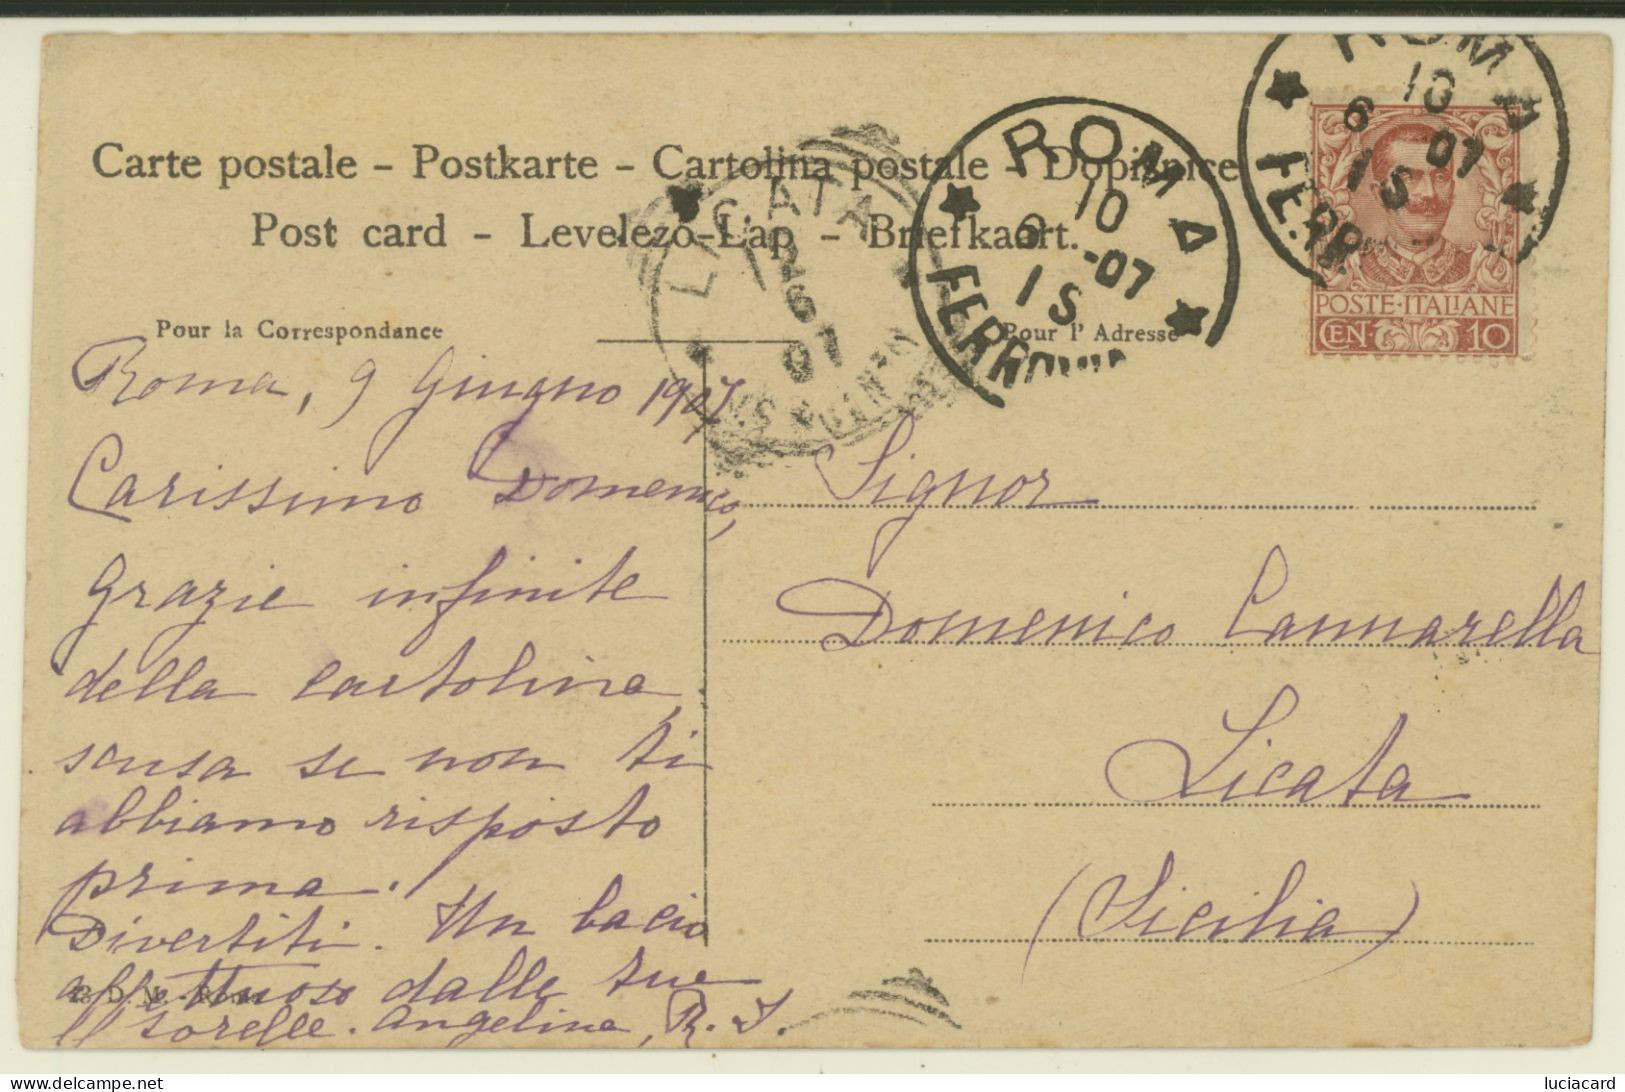 Carte postale – Postkarte – Cartolina postale – Dopisnice
Post card – Levelező-Lap – Briefkaart.
ROMA
FERROVIA
10
6 -07
1 S
ROMA
FERR
10
6 07
1 S
LICATA
12
6
07
POSTE·ITALIANE
CEN· 10
Pour la Correspondance
Pour l'Adresse
Roma, 9 Giugno 1907
Carissimo Domenico,
Grazie infinite
della cartolina,
scusa se non ti
abbiamo risposto
prima.
Divertiti. Un bacio
affettuoso dalle tue
sorelle. Angelina, R. I.
D. M. - Roma
Signor
Domenico Cannarella
Licata
(Sicilia)
luciacard